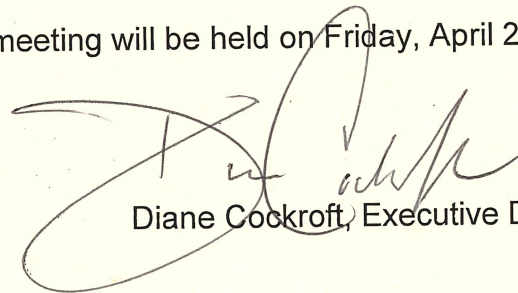 meeting will be held on Friday, April 2
Diane Cockroft, Executive D